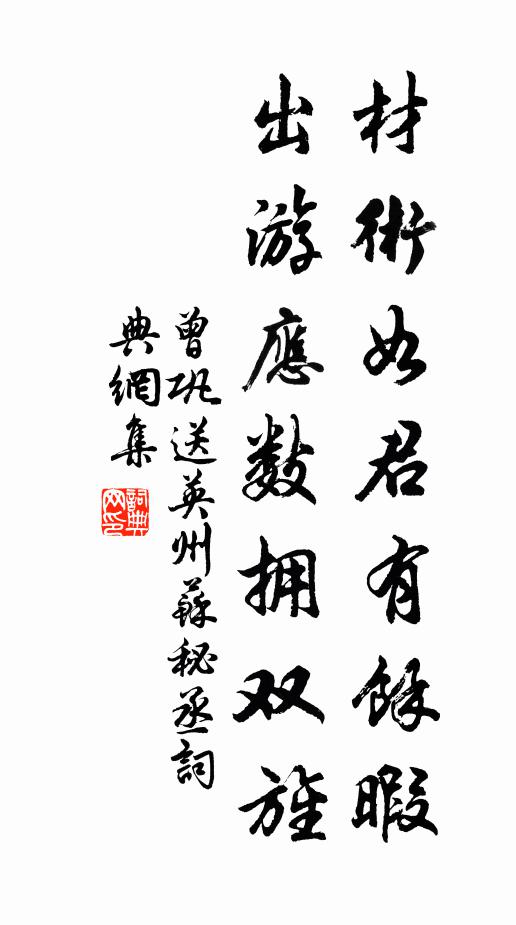 材術如君有餘暇
出游應數拥双旌
曾巩送英州蘇秘丞詞
典網集
詞典网印